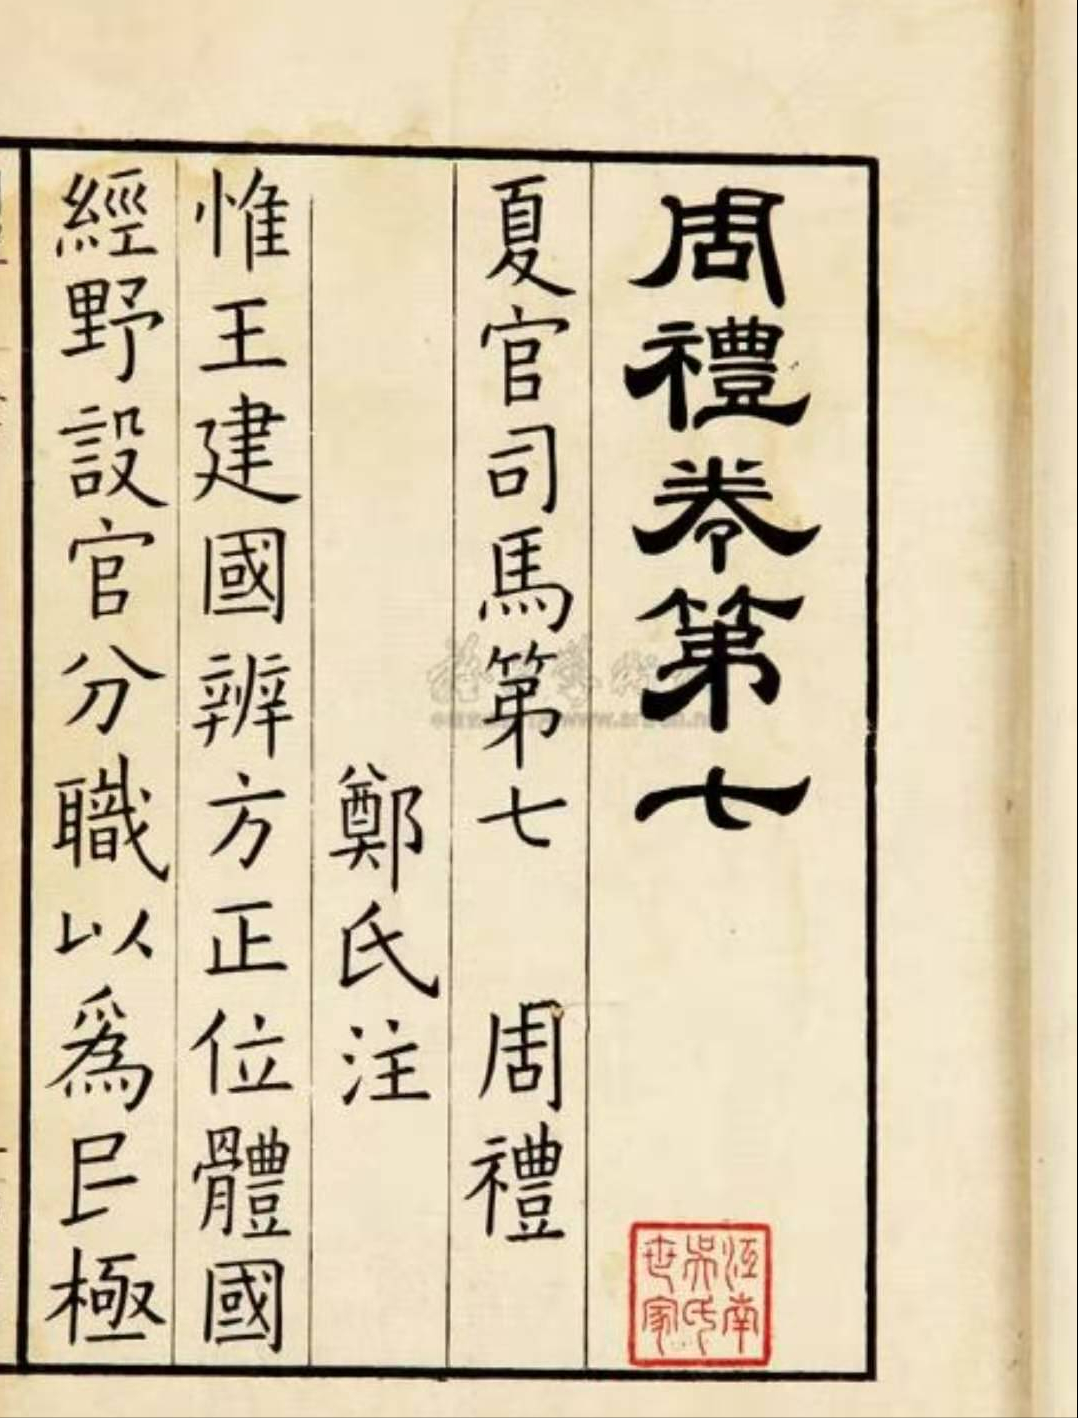 周禮卷第七
夏官司馬第七 周禮
鄭氏注
惟王建國辨方正位體國
經野設官分職以爲民極
江南
吳氏
世家